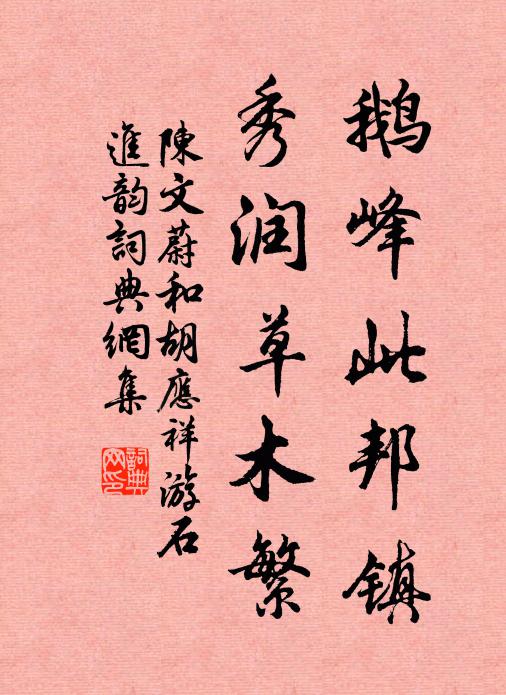 鹅峰此邦镇
秀润草木繁
陳文蔚和胡應祥游石
進韵詞典網集
詞典网印